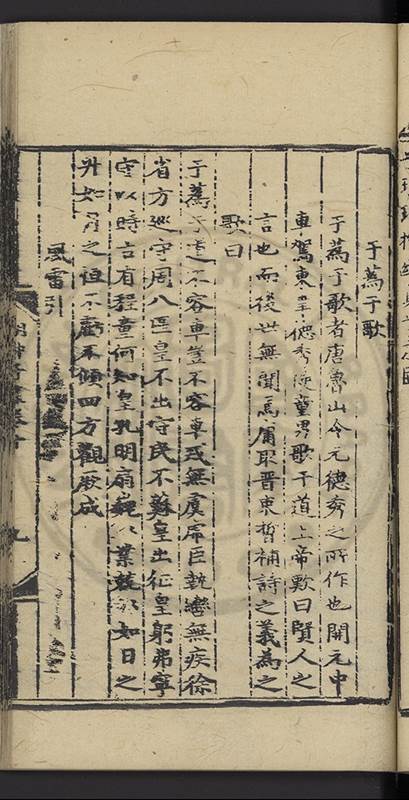 于蔿于歌
于蔿于歌者唐魯山令元德秀之所作也開元中
車駕東 德秀 童男歌于道上帝歎曰賢人之
言也而後世無聞焉庸取晋束晳補詩之義為之
歌曰
于蔿于 不容車 不容車或無虞虎臣執轡無疾徐
省方巡守周八區皇不出守民不蘇皇出征皇躬弗寧
守以時言有程童何知皇孔明扇巍巍業兢兢如日之
升如月之恒不虧不傾四方觀厥成
風雷引